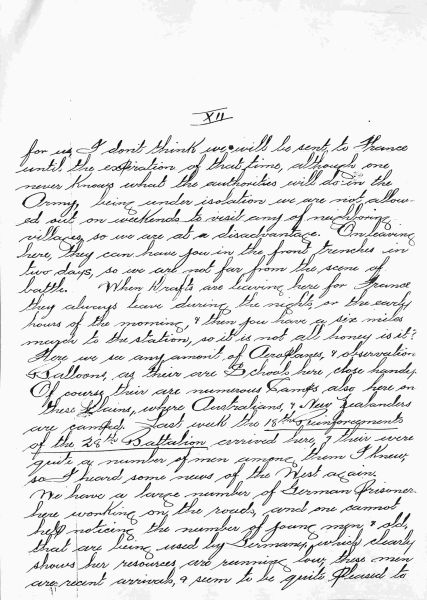 XII
for us I dont think we will be sent to France
until the expiration of that time, although one
never knows what the authorities will do in the
Army, being under isolation we are not allow-
ed out on weekends to visit any of neighboring
villages, so we are at a disadvantage. On leaving
here, they can have you in the front trenches in
two days, so we are not far from the scene of
battle. When Drafts are leaving here for France
they always leave during the night, or the early
hours of the morning, & then you have a six miles
march to the station, so it is not all honey is it?
Here we see any amount of Aeroplanes, & observation
Balloons, as their are Schools here close handy.
Of course their are numerous Camps also here on
these Plains, where Australians, & New Zealanders
are camped. Last week the 18th Reinforcements
of the 28th Battalion arrived here, & their were
quite a number of men among them I knew,
so I heard some news of the West again.
We have a large number of German Prisoners
here working on the roads, and one cannot
help noticing the number of young men, & old,
that are being used by Germany, which clearly
shows her resources are running low, these men
are recent arrivals, & seem to be quite pleased to